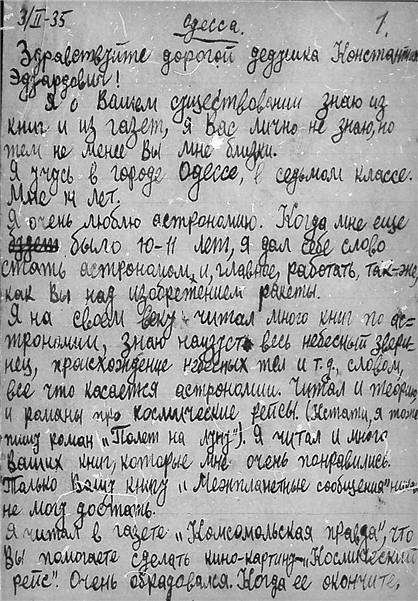 3/II-35 Одесса. 1.
Здравствуйте дорогой дедушка Константин
Эдуардович!
Я о Вашем существовании знаю из
книг и из газет, я Вас лично не знаю, но
тем не менее Вы мне близки.
Я учусь в городе Одессе, в седьмом классе.
Мне 14 лет.
Я очень люблю астрономию. Когда мне еще
было 10-11 лет, я дал себе слово
стать астрономом, и, главное, работать, так-же,
как Вы над изобретением ракеты.
Я на своем веку читал много книг по ас-
трономии, знаю наизусть весь небесный звери-
нец, происхождение небесных тел и т.д., словом,
все что касается астрономии. Читал и теорию
и романы про космические рейсы. (Кстати, я тоже
пишу роман „Полет на луну“). Я читал и много
Ваших книг, которые мне очень понравились.
Только Вашу книгу „Межпланетные сообщения“
не могу достать.
Я читал в газете „Комсомольская правда“, что
Вы помогаете сделать кино-картину „Космический
рейс“. Очень обрадовался. Когда ее окончите,